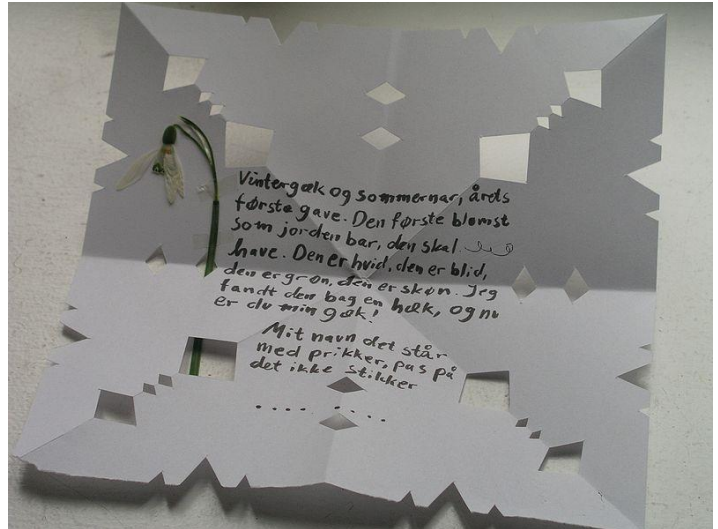 Vintergæk og sommernar, årets
første gave. Den første blomst
som jorden bar, den skal
have. Den er hvid, den er blid,
den er grøn, den er skøn. Jeg
fandt den bag en hæk, og nu
er du min gæk!
Mit navn det står
med prikker, pas på
det ikke stikker
.... . ....